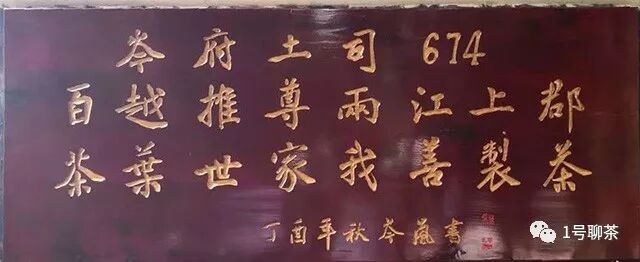 岑府土司 674
百越推尊兩江上郡
茶葉世家我善製茶
丁酉年秋岑嵐書
1号聊茶